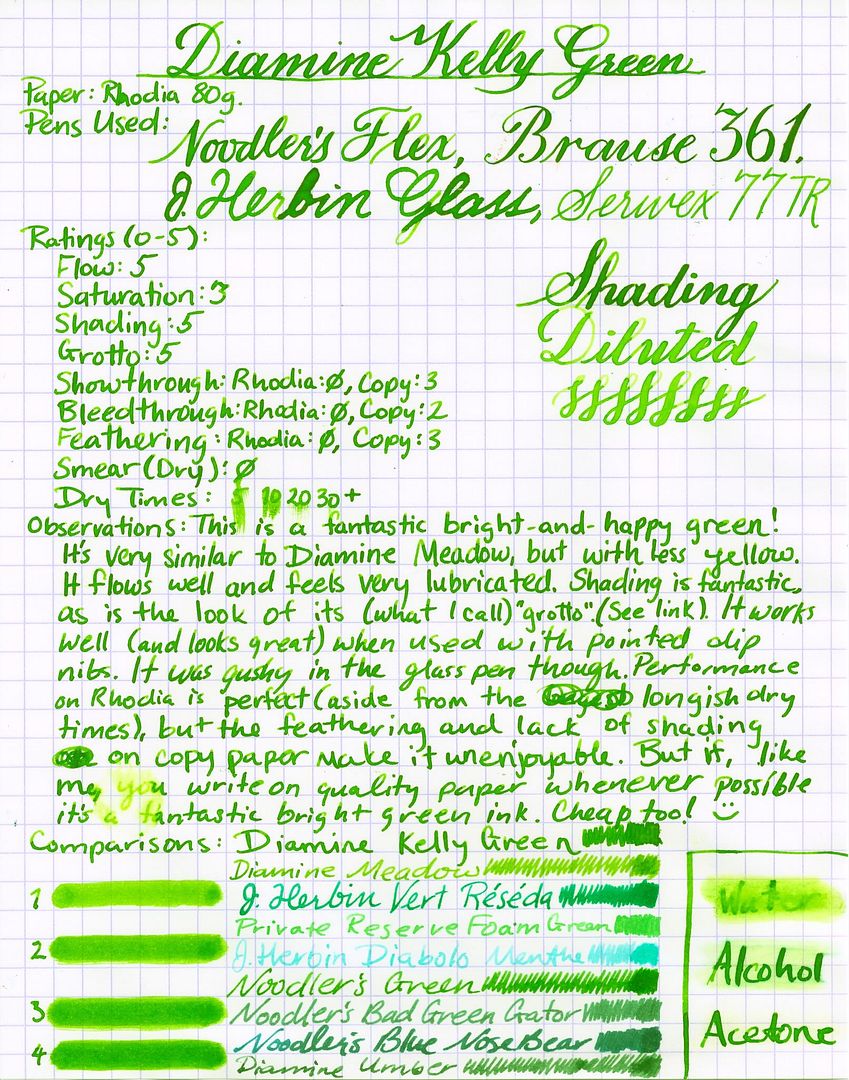 Diamine Kelly Green
Paper: Rhodia 80g.
Pens Used:
Noodler's Flex, Brause 361.
J. Herbin Glass, Serwex 77TR
Ratings (0-5):
Flow: 5
Saturation: 3
Shading: 5
Grotto: 5
Showthrough: Rhodia: Ø, Copy: 3
Bleedthrough: Rhodia: Ø, Copy: 2
Feathering: Rhodia: Ø, Copy: 3
Smear (Dry): Ø
Dry Times: 5 10 20 30+
Shading
Diluted
Observations: This is a fantastic bright-and-happy green!
It's very similar to Diamine Meadow, but with less yellow.
It flows well and feels very lubricated. Shading is fantastic,
as is the look of its (what I call) "grotto". (See link). It works
well (and looks great) when used with pointed dip
nibs. It was gushy in the glass pen though. Performance
on Rhodia is perfect (aside from the longish dry
times), but the feathering and lack of shading
on copy paper make it unenjoyable. But if, like
me, you write on quality paper whenever possible
it's a fantastic bright green ink. Cheap too! :)
Comparisons: Diamine Kelly Green
Diamine Meadow
J. Herbin Vert Réséda
Private Reserve Foam Green
J. Herbin Diabolo Menthe
Noodler's Green
Noodler's Bad Green Gator
Noodler's Blue Nose Bear
Diamine Umber
1
2
3
4
Water
Alcohol
Acetone